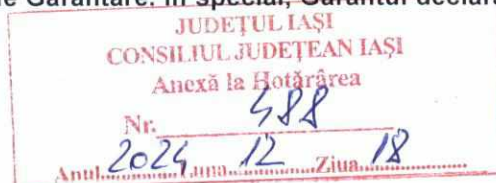 de Garantare. În special, Garantul declară
JUDEȚUL IAȘI
CONSILIUL JUDEȚEAN IAȘI
Anexă la Hotărârea
Nr. 488
Anul 2024 Luna 12 Ziua 18